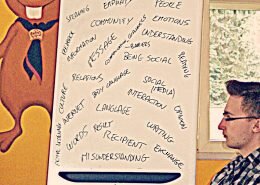 SPEAKING EMPATHY PEOPLE
COMMUNITY EMOTIONS
INFORMATION MESSAGE UNDERSTANDING
BEING SOCIAL READING
CULTURE RELATIONS BODY LANGUAGE SOCIAL (MEDIA)
INTERNET INTERACTION OPINION
LANGUAGE
WORDS RESULT WRITING
RECIPIENT EXCHANGE
MISUNDERSTANDING